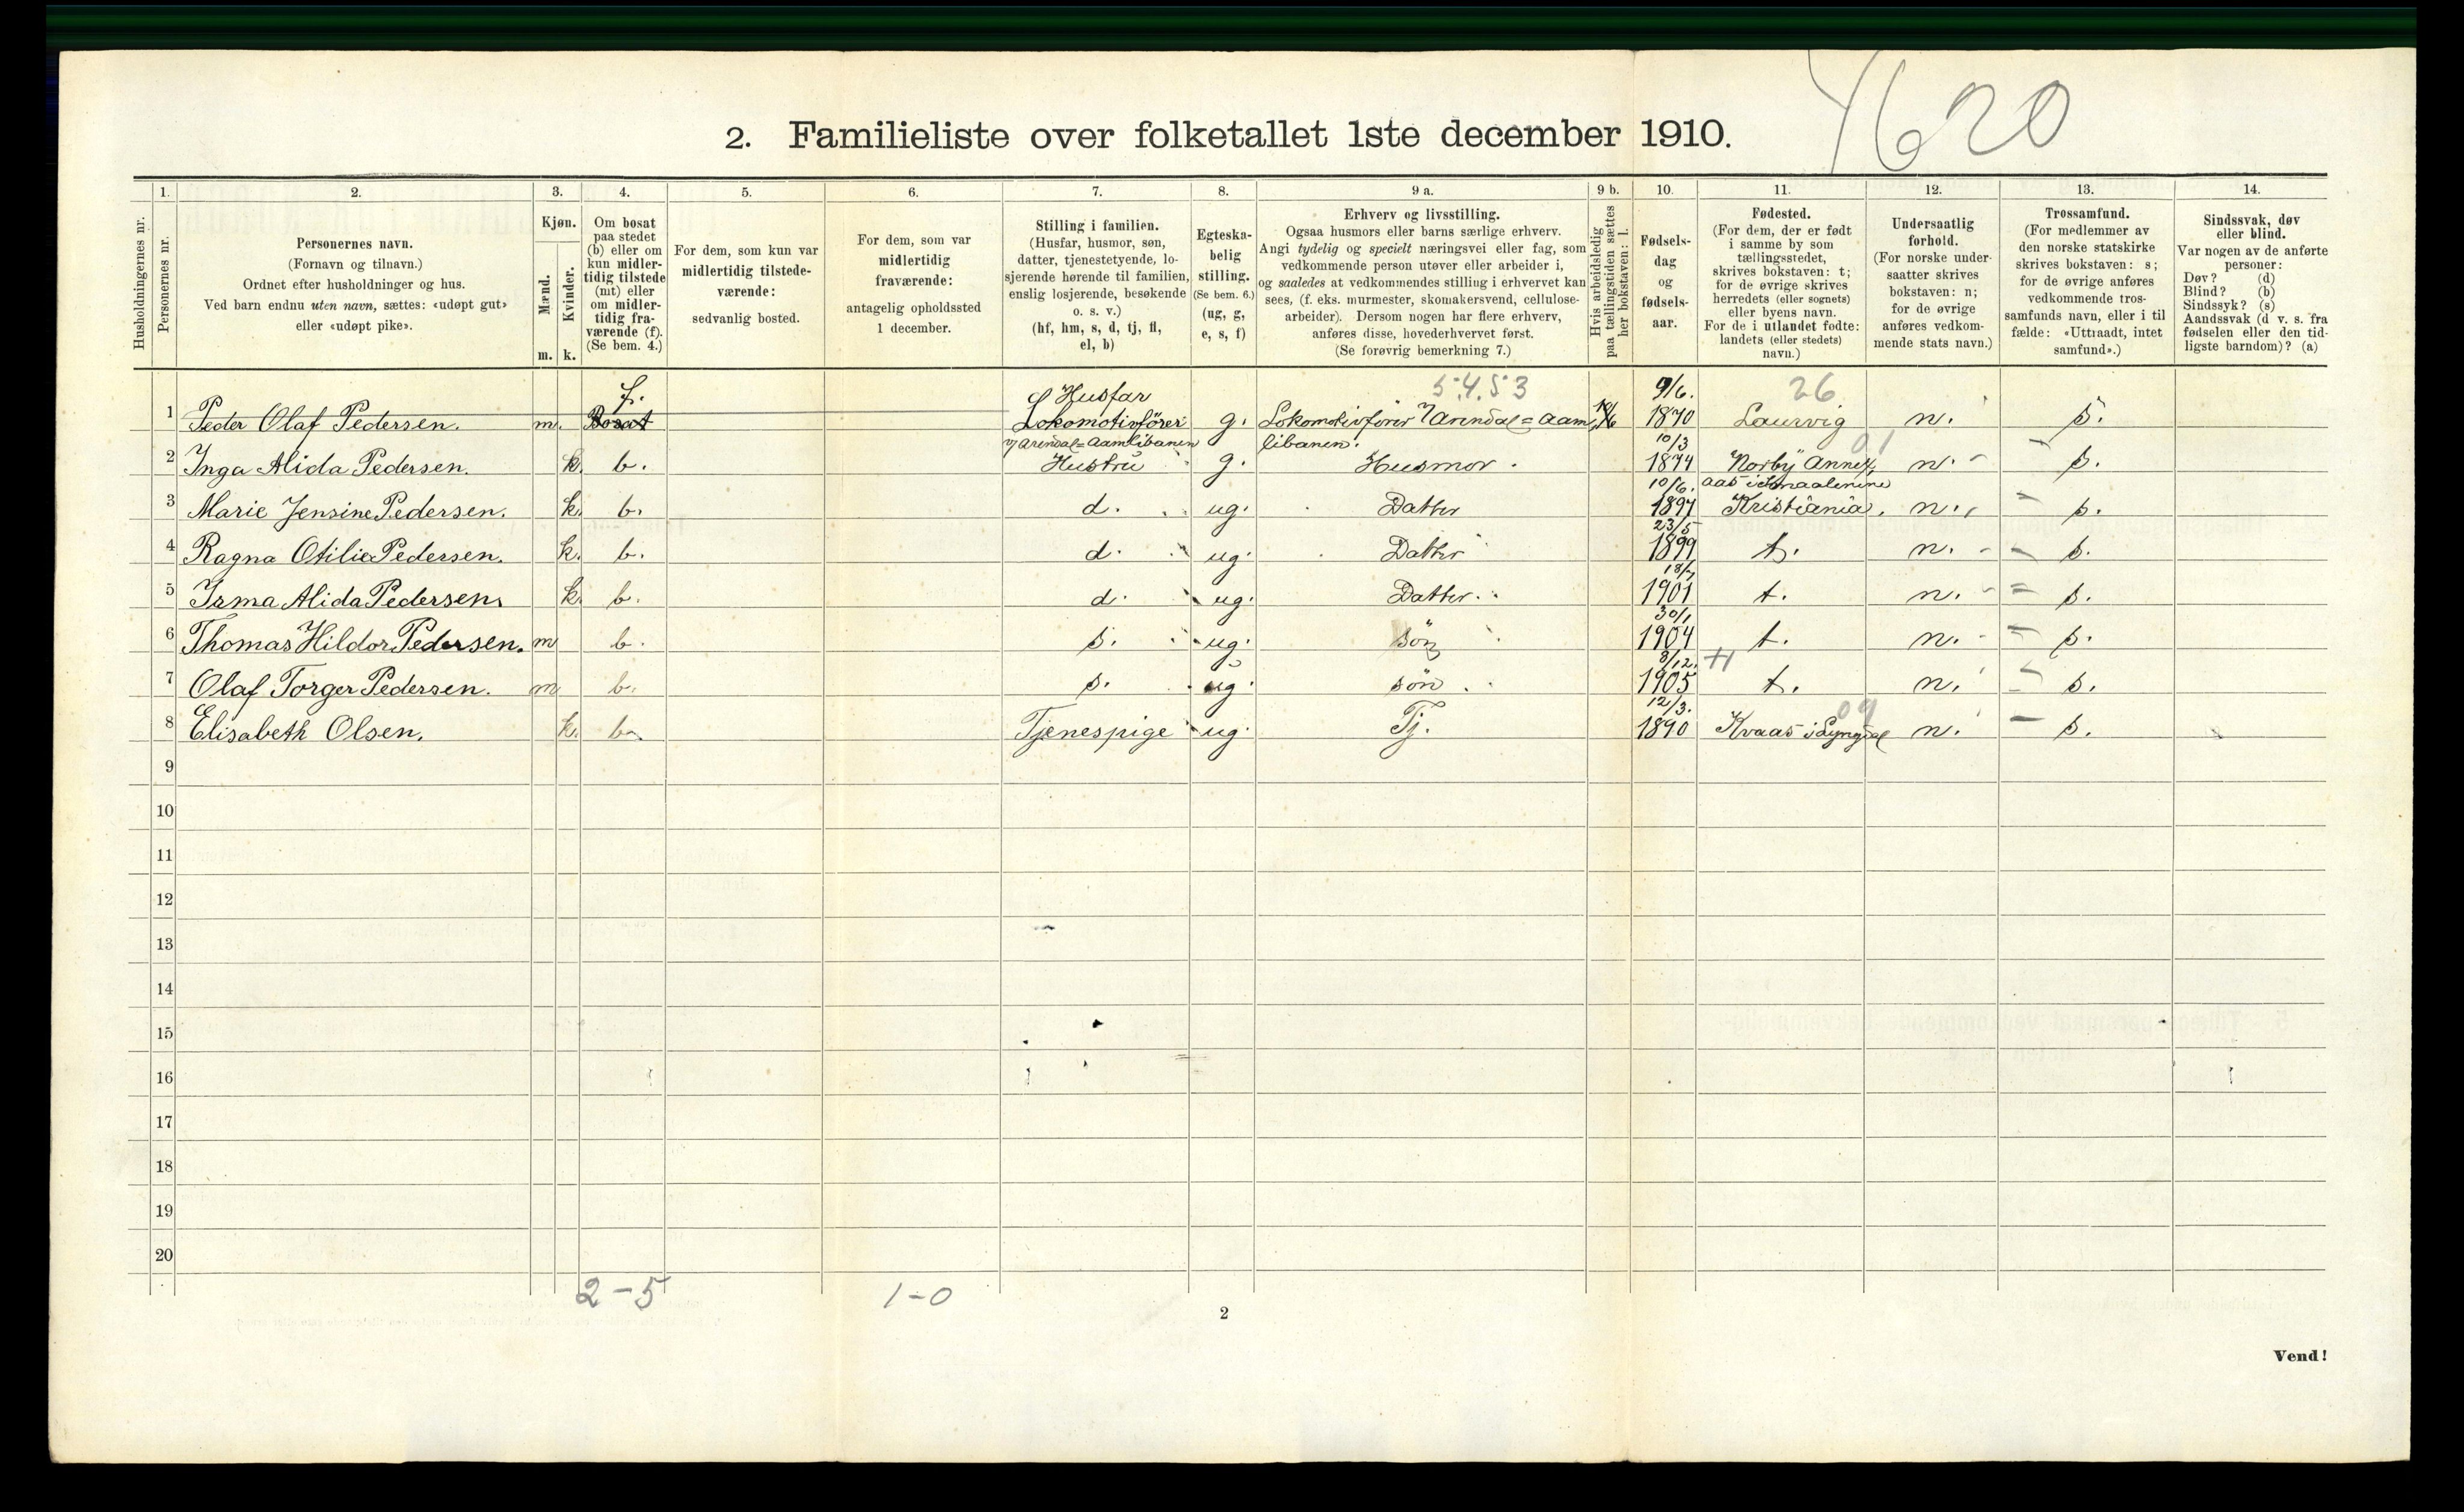 4620
2. Familieliste over folketallet 1ste december 1910.
Husholdningernes nr.
1.
Personernes nr.
2.
Personernes navn.
(Fornavn og tilnavn.)
Ordnet efter husholdninger og hus.
Ved barn endnu uten navn, sættes: «udøpt gut»
eller «udøpt pike».
3.
Kjøn.
Mænd.
Kvinder.
m. k.
4.
Om bosat
paa stedet
(b) eller om
kun midler-
tidig tilstede
(mt) eller
om midler-
tidig fra-
værende (f).
(Se bem. 4.)
5.
For dem, som kun var
midlertidig tilstede-
værende:
sedvanlig bosted.
6.
For dem, som var
midlertidig
fraværende:
antagelig opholdssted
1 december.
7.
Stilling i familien.
(Husfar, husmor, søn,
datter, tjenestetyende, lo-
sjerende hørende til familien,
enslig losjerende, besøkende
o. s. v.)
(hf, hm, s, d, tj, fl,
el, b)
8.
Egteska-
belig
stilling.
(Se bem. 6.)
(ug, g,
e, s, f)
9 a.
Erhverv og livsstilling.
Ogsaa husmors eller barns særlige erhverv.
Angi tydelig og specielt næringsvei eller fag, som
vedkommende person utøver eller arbeider i,
og saaledes at vedkommendes stilling i erhvervet kan
sees, (f. eks. murmester, skomakersvend, cellulose-
arbeider). Dersom nogen har flere erhverv,
anføres disse, hovederhvervet først.
(Se forøvrig bemerkning 7.)
9 b.
Hvis arbeidsledig
paa tællingstiden sættes
her bokstaven: l.
10.
Fødsels-
dag
og
fødsels-
aar.
11.
Fødested.
(For dem, der er født
i samme by som
tællingsstedet,
skrives bokstaven: t;
for de øvrige skrives
herredets (eller sognets)
eller byens navn.
For de i utlandet fødte:
landets (eller stedets)
navn.)
12.
Undersaatlig
forhold.
(For norske under-
saatter skrives
bokstaven: n;
for de øvrige
anføres vedkom-
mende stats navn.)
13.
Trossamfund.
(For medlemmer av
den norske statskirke
skrives bokstaven: s;
for de øvrige anføres
vedkommende tros-
samfunds navn, eller i til
fælde: «Uttraadt, intet
samfund».)
14.
Sindssvak, døv
eller blind.
Var nogen av de anførte
personer:
Døv? (d)
Blind? (b)
Sindssyk? (s)
Aandssvak (d v. s. fra
fødselen eller den tid-
ligste barndom)? (a)
f. Husfar 5.4.53 9/6. 26
1 Peder Olaf Pedersen. m. Bosat Lokomotivfører g. Lokomotivfører v/ Arendal=Aam 1870 Laurvig n. s.
v/ Arendal=Aamlibanen libanen. 10/3 01
2 Inga Alida Pedersen. k. b. Hustru g. Husmor. 1874 Norby Annex, n. s.
10/6. aas i Smaalenene
3 Marie Jensine Pedersen. k. b. d. ug. Datter 1897 Kristiania. n. s.
23/5
4 Ragna Otilie Pedersen. k. b. d. ug. Datter 1899 t. n. s.
18/7
5 Irma Alida Pedersen. k. b. d. ug. Datter. 1901 t. n. s.
30/1
6 Thomas Hildor Pedersen. m b. s. ug. søn 1904 t. n. s.
8/12.
7 Olaf Torger Pedersen. m b. s. ug. søn. 1905 t. n. s.
12/3. 09
8 Elisabeth Olsen. k. b. Tjenespige ug. Tj. 1890 Kvaas i Lyngdal n. s.
9
10
11
12
13
14
15
16
17
18
19
20
2-5 1-0
2
Vend!